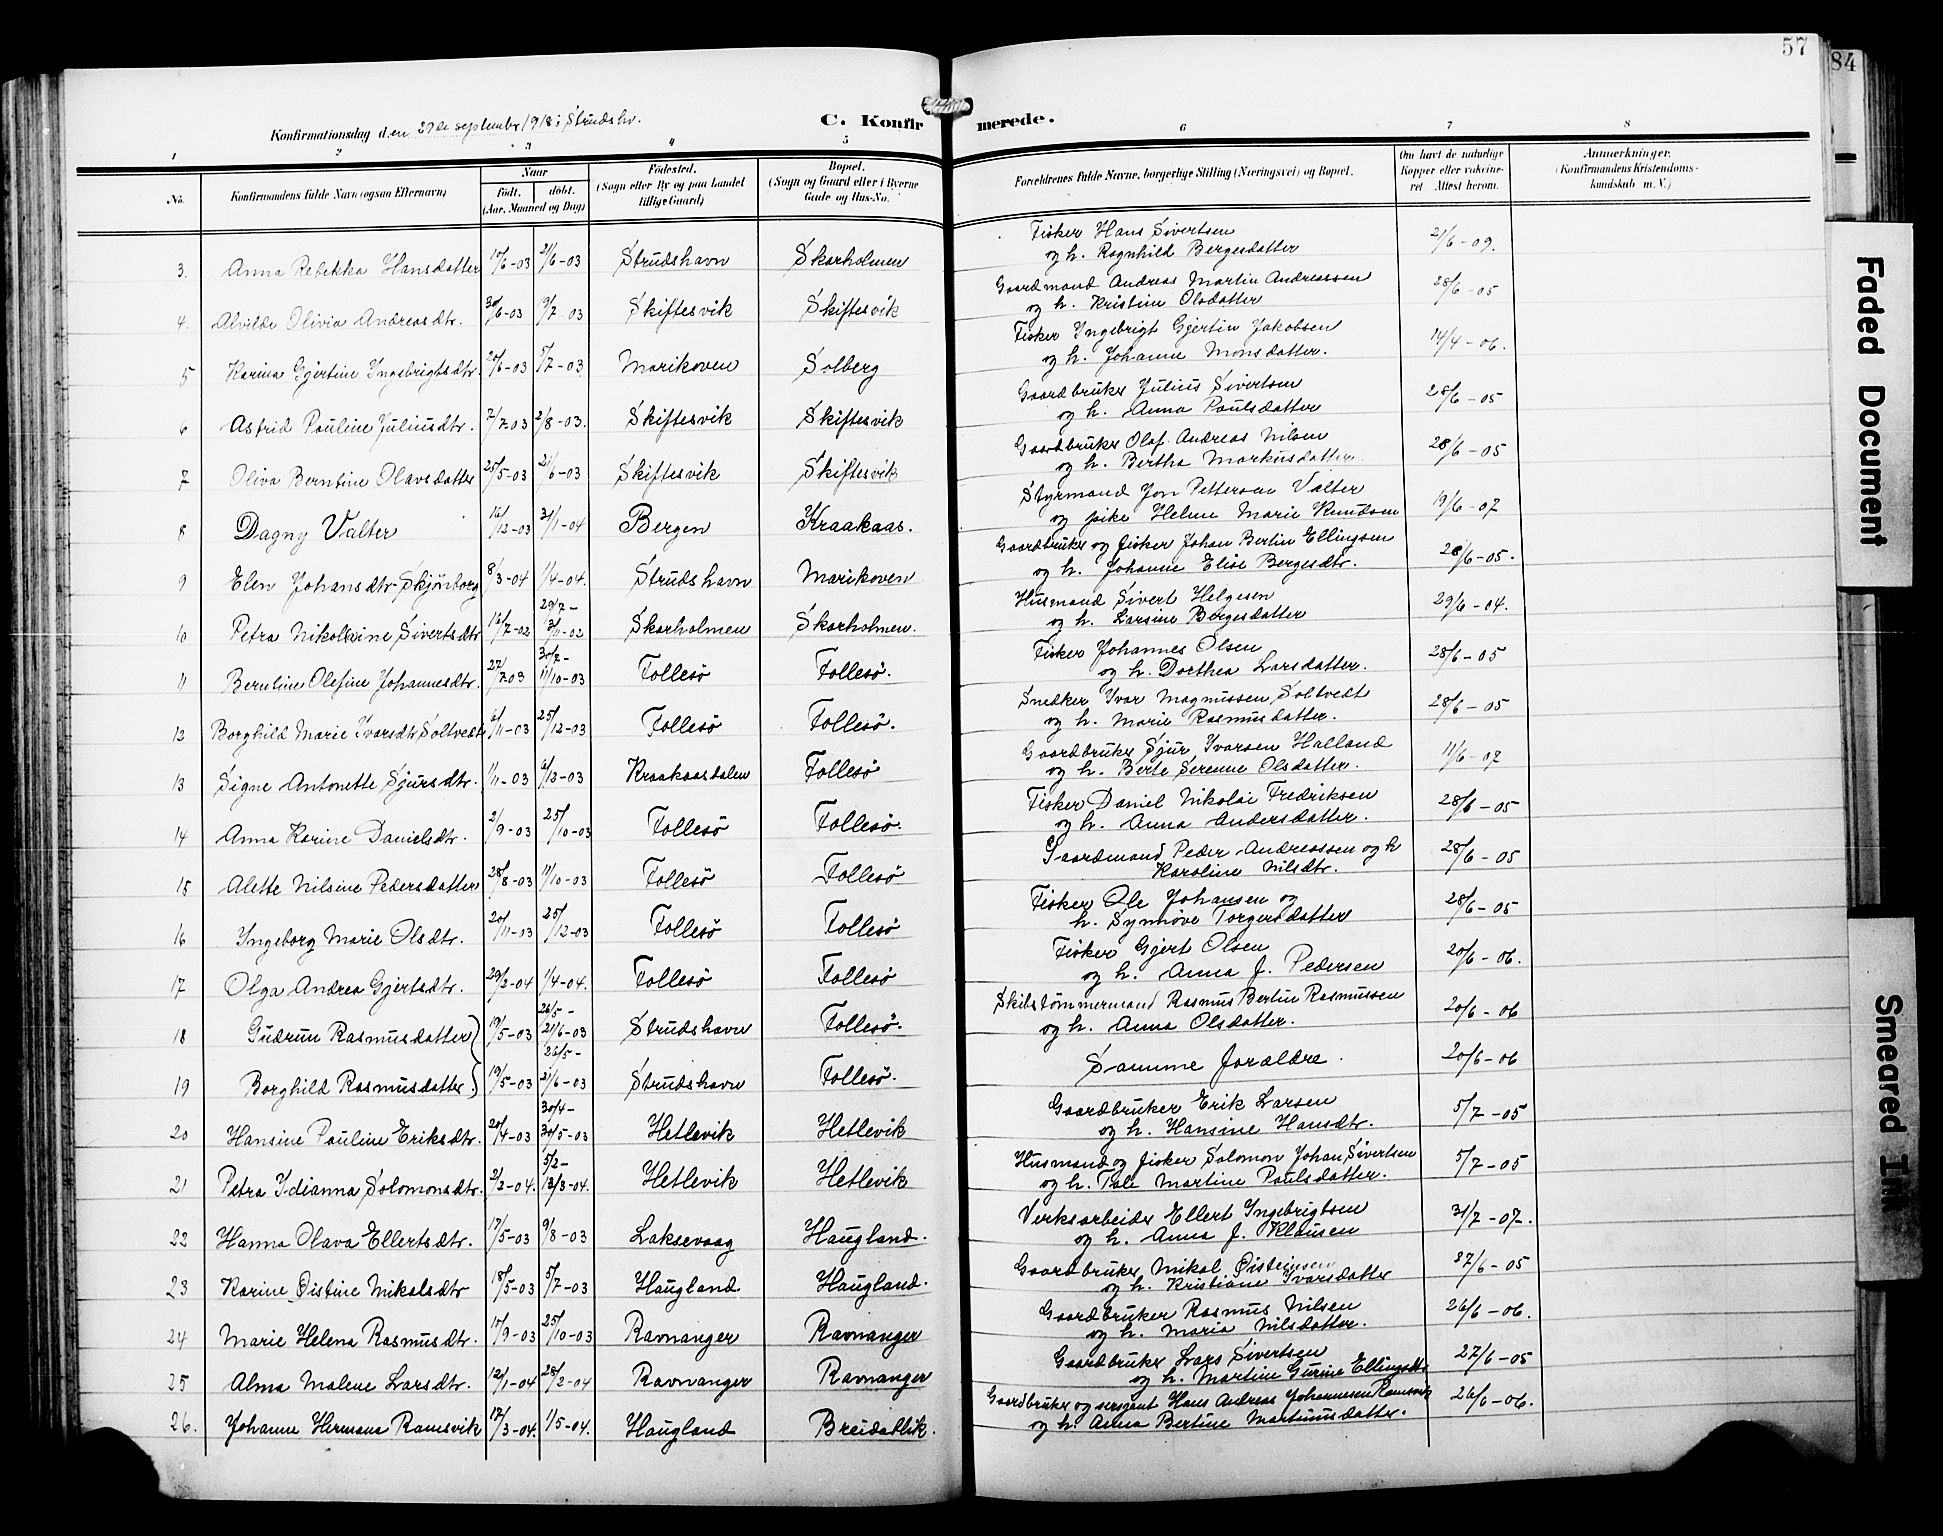 57
84
Konfirmationsdag den september 1918 i Strudshv.
C. Konfirmerede.
1 2 3 4 5 6 7 8
No.
Konfirmandens fulde Navn (ogsaa Efternavn)
Naar
født. døbt.
(Aar, Maaned og Dag)
Fødested.
(Sogn eller By og paa Landet
tillige Gaard)
Bopæl.
(Sogn og Gaard eller i Byerne
Gade og Hus-No.
Forældrenes fulde Navne, borgerlige Stilling (Næringsvei) og Bopæl.
Om havt de naturlige
Kopper eller vaccine-
ret. Attest herom.
Anmerkninger.
(Konfirmandens Kristendoms-
kundskab m. V.)
Fisker Hans Sivertsen
3. Anna Rebekka Hansdatter 10/6-03 21/6-03 Strudshavn Skarholmen og h. Ragnhild Bergesdatter 21/6-09.
Gaardmand Andreas Martin Andreassen
4. Alvilde Olivia Andreasdtr. 30/6-03 19/7-03 Skiftesvik Skiftesvik og h. Kristine Olsdatter 28/6-05
Fisker Ingebrigt Gjertin Jakobsen
5 Karina Gjertine Ingebrigtsdtr. 20/6-03 5/7-03 Marikoven Solberg og h. Johanne Monsdatter. 14/4-06.
Gaardbruker Julius Sivertsen
6 Astrid Pauline Juliusdtr. 7/7-03 2/8-03. Skiftesvik Skiftesvik og h. Anna Paulsdatter 28/6-05
Gaardbruker Olaf Andreas Nilsen
7 Oliva Berntine Olavsdatter 25/5-03 21/6-03 Skiftesvik Skiftesvik og h. Bertha Markusdatter. 28/6-05
Styrmand Jon Petterson Valter
8 Dagny Valter 16/12-03 31/1-04 Bergen Kraakaas. og pike Helene Marie Knudsen 19/6-07
Gaardbruker og fisker Johan Bertin Ellingsen
9 Elen Johansdtr Skjønborg 8/3-04 1/4-04. Strudshavn Marikoven og h. Johanne Elise Bergesdtr. 28/6-05.
Husmand Sivert Helgesen
29/7-
10 Petra Nikolkine Sivertsdtr 16/7-02 13/11-02 Skarholmen Skarholmen. og h. Larsine Børgesdatter 29/6-04.
Fisker Johannes Olsen
30/7-
11 Berntine Olefine Johannesdtr. 27/7-03 11/10-03 Follesø Follesø. og h. Dorthea Larsdatter. 28/6-05
Snedker Ivar Magnussen Soltvedt
12 Borghild Marie Ivarsdtr Soltvedt 6/11-03 25/12-03 Follesø Follesø. og h. Marie Rasmusdatter. 28/6-05
Gaardbruker Sjur Ivarsen Halland
13 Signe Antonette Sjursdtr. 1/11-03 6/12-03 Kraakaasdalen Follesø og h. Berte Serenne Olsdatter. 11/6-07
Fisker Daniel Nikolai Fredriksen
14 Anna Karine Danielsdtr. 2/9-03 25/10-03 Follesø Follesø. og h. Anna Andersdatter. 28/6-05
Gaardmand Peder Andreassen og h
15 Alette Nilsine Pedersdatter 28/8-03 11/10-03 Follesø Follesø Karoline Nilsdtr. 28/6-05
Fisker Ole Johansen og
16 Ingeborg Marie Olsdtr. 20/11-03 25/12-03 Follesø Follesø h. Synnøve Torgersdatter 28/6-05
Fisker Gjert Olsen
17 Olga Andrea Gjertsdtr. 29/2-04 1/4-04. Follesø Follesø og h. Anna J. Pedersen 20/6-06.
Skibstømmermand Rasmus Bertin Rasmussen
26/5-
18 Gudrun Rasmusdatter 19/5-03 21/6-03 Strudshavn Follesø. og h. Anna Olsdatter. 20/6-06
26/5-
19 Borghild Rasmusdatter 19/5-03 21/6-03 Strudshavn Follesø. Samme forældre. 20/6-06
Gaardbruker Erik Larsen
30/4-
20 Hansine Pauline Eriksdtr. 20/4-03 30/5-03 Hetlevik Hetlevik og h. Hansine Hansdtr. 5/7-05
Husmand og fisker Solomon Johan Sivertsen
5/2-
21 Petra Idianna Solomonsdtr. 2/2-04. 13/3-04. Hetlevik Hetlevik og h. Tale Martine Paulsdatter. 5/7-05
Verksarbeider Ellert Ingebrigtsen
22 Hanna Olava Ellertsdtr. 17/5-03 9/8-03 Laksevaag Haugland. og h. Anna J. Klausen 31/7-07.
Gaardbruker Nikol Øisteinsen
23 Karine Øistine Nikolsdtr 18/5-03 5/7-03 Haugland Haugland. og h. Kristiane Ivarsdatter 27/6-05
Gaardbruker Rasmus Nilsen
24 Marie Helena Rasmusdtr. 17/9-03 25/10-03 Ravnanger Ravnanger og h. Maria Nilsdatter. 26/6-06.
Gaardbruker Lars Sivertsen
25 Alma Malene Larsdtr. 12/1-04 28/2-04 Ravnanger Ravnanger og h. Martine Gurine Ellingsdtr 27/6-05
Gaardbruker og sersjant Hans Andreas Johannesen Ramsvik
26. Johanne Hermana Ramsvik 17/3-04. 1/5-04. Haugland Breidablik. og h. Anna Bertine Martinusdatter. 26/6-06.
Faded Document
Smeared Ink